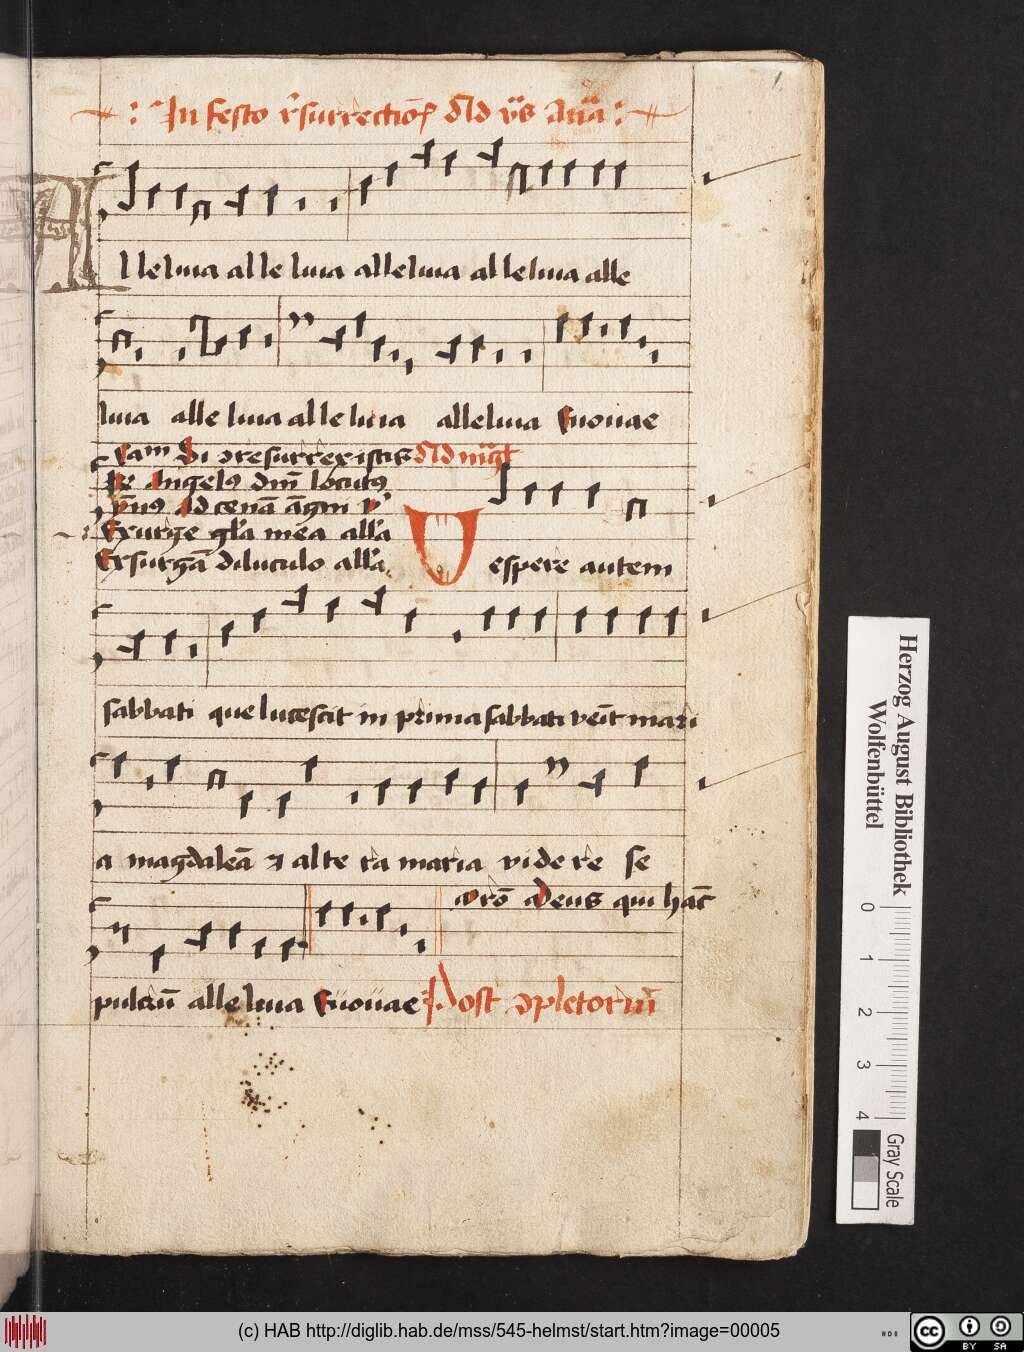 1.
In festo rsurrectioꝝ ad vꝰs Aña
Alleluia alleluia alleluia alleluia alle
luia alleluia alleluia alleluia Euouae
Cam Si ↄresurrexistis ad mgt
Re Angelꝰ dm̄ locutꝰ
ad cenā āgni
Exurge gla mea alla
Exsurgā diluculo alla
Vespere autem
sabbati que lucescit in prima sabbati veīt mari
a magdaleā ⁊ altera maria videre se
orō Deus qui hāc
pulcrū alleluia Euouae Post ↄpletoriū
Herzog August Bibliothek
Wolfenbüttel
0 1 2 3 4
Gray Scale
(c) HAB http://diglib.hab.de/mss/545-helmst/start.htm?image=00005
cc BY SA